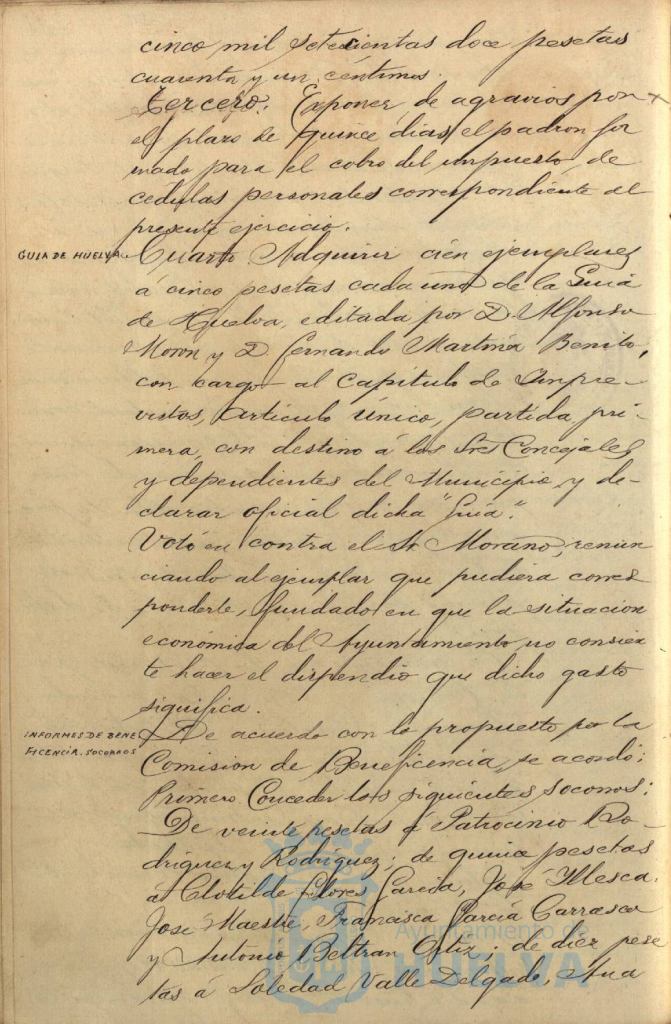 cinco mil setecientas doce pesetas
cuarenta y un céntimos.
Tercero. Exponer de agravios por
el plazo de quince dias, el padron for
mado para el cobro del impuesto, de
cédulas personales correspondiente al
presente ejercicio.
GUIA DE HUELVA.
Cuarto Adquirir cien ejemplares
á cinco pesetas cada uno de la Guia
de Huelva, editada por D. Alfonso
Moron y D. Fernando Martin Benito,
con cargo al Capitulo de Impre-
vistos, Articulo Único, partida pri-
mera, con destino á los Sres Concejales
y dependientes del Municipio y de-
clarar oficial dicha "Guia".
Votó en contra el Sr. Moreno, renun
ciando al ejemplar que pudiera corres
ponderle, fundado en que la situacion
económica del Ayuntamiento no consien
te hacer el dispendio que dicho gasto
significa.
INFORMES DE BENE
FICENCIA. SOCORROS
De acuerdo con lo propuesto por la
Comision de Beneficencia, se acordó:
Primero. Conceder los siguientes socorros:
De veinte pesetas á Patrocinio Ro-
driguez y Rodriguez; de quince pesetas
a Clotilde Flores Garcia, José Illesca,
José Maestre, Francisca Garcia Carrasco
y Antonio Beltran Ortiz; de diez pese
tas á Soledad Valle Delgado, Ana
Ayuntamiento de
HUELVA